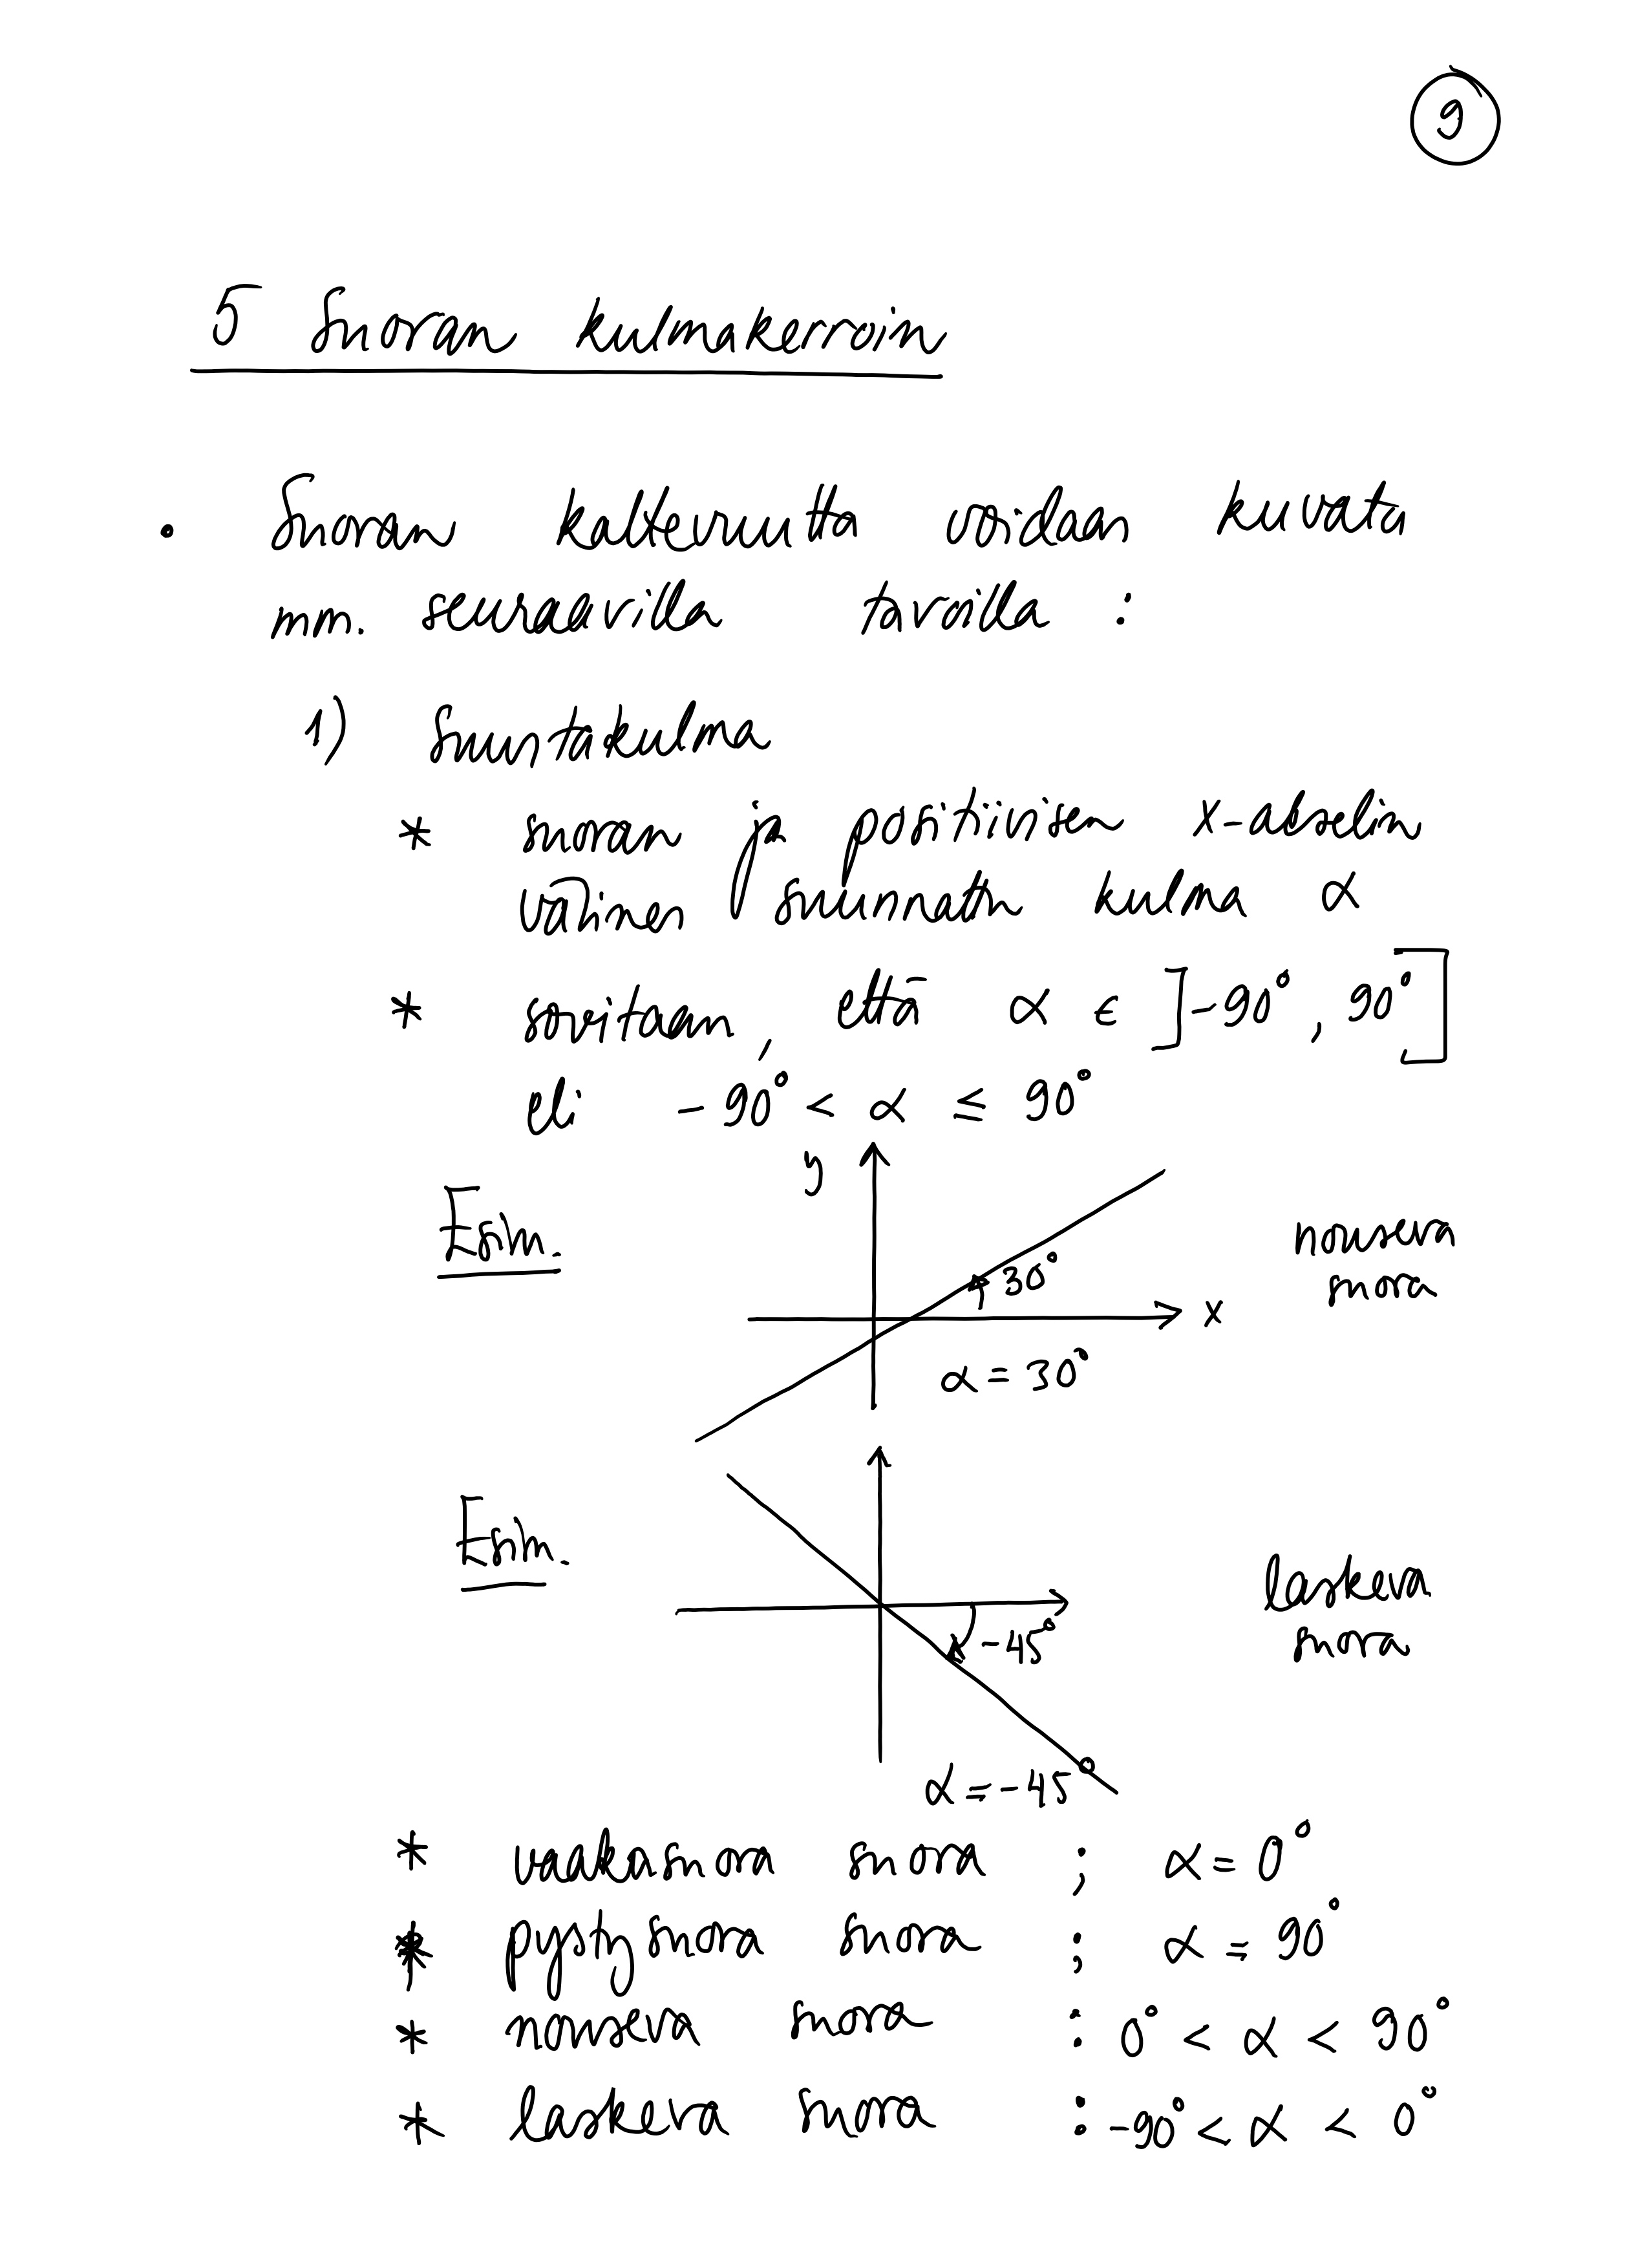 9
5 Suoran kulmakerroin
• Suoran kaltevuutta voidaan kuvata
mm. seuraavilla tavoilla :
1) Suuntakulma
* suoran ja positiivisen x-akselin
välinen suunnattu kulma α
* sovitaan, että α ∈ ]-90°, 90°]
eli -90° < α ≤ 90°
y
Esim.
nouseva
suora
30°
x
α = 30°
Esim.
laskeva
suora
-45°
α = -45°
* vaakasuora suora ; α = 0°
* pystysuora suora ; α = 90°
* nouseva suora : 0° < α < 90°
* laskeva suora : -90° < α < 0°